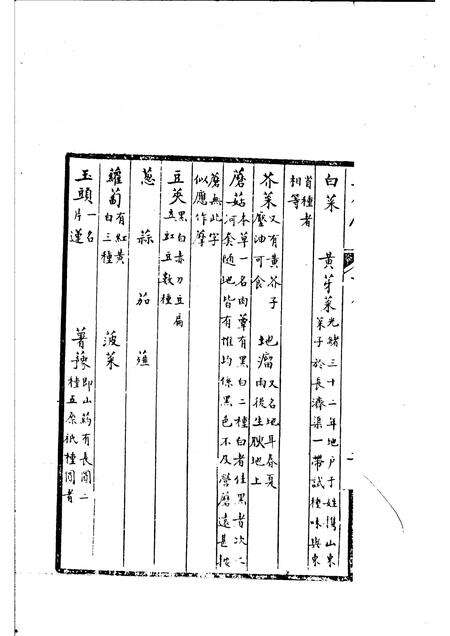 白菜　黃芽菜 光緒三十二年地戶于姓攜山東
菜子於長濟渠一帶試種味與東
省種者
相等
芥菜 又有黃芥子
壓油可食　地 又名地耳春夏
雨後生腴地上
蘑菇 本草一名肉蕈有黑白二種白者佳黑者次之
河套隨地皆有惟均係黑色不及營蘑遠甚按
蘑無此字
似應作摩
豆莢 黑白赤刀豆扁
豆豇豆數種
葱　蒜　茄
蘿蔔 有紅黃
白三種　菠菜
玉頭 一名
片蓮　薯蕷 即山葯有長圓二
種五原祇種圓者